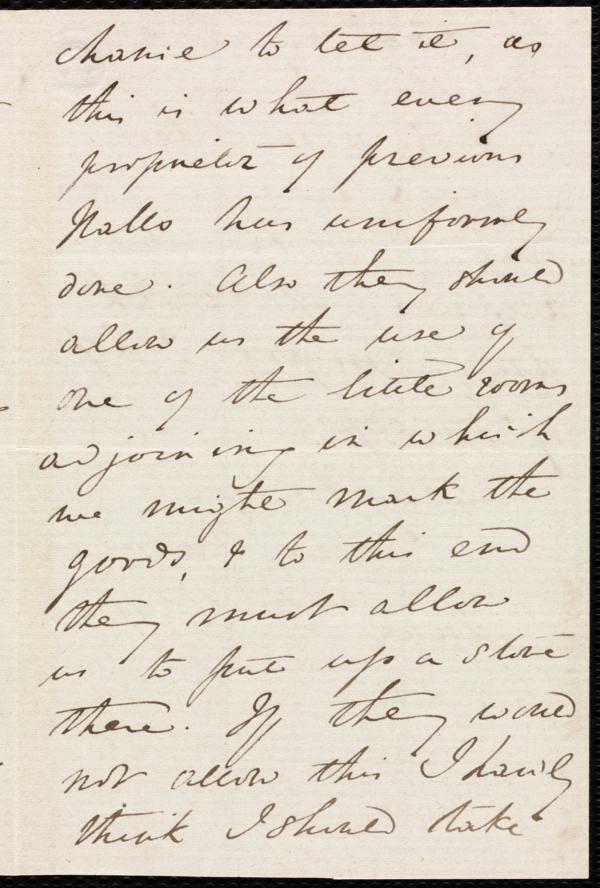 chance to let it, as
this is what every
proprietor of previous
Halls has uniformly
done. Also they should
allow us the use of
one of the little rooms
adjoining in which
we might mark the
goods, & to this end
they must allow
us to put up a stove
there. If they would
not allow this I hardly
think I should take